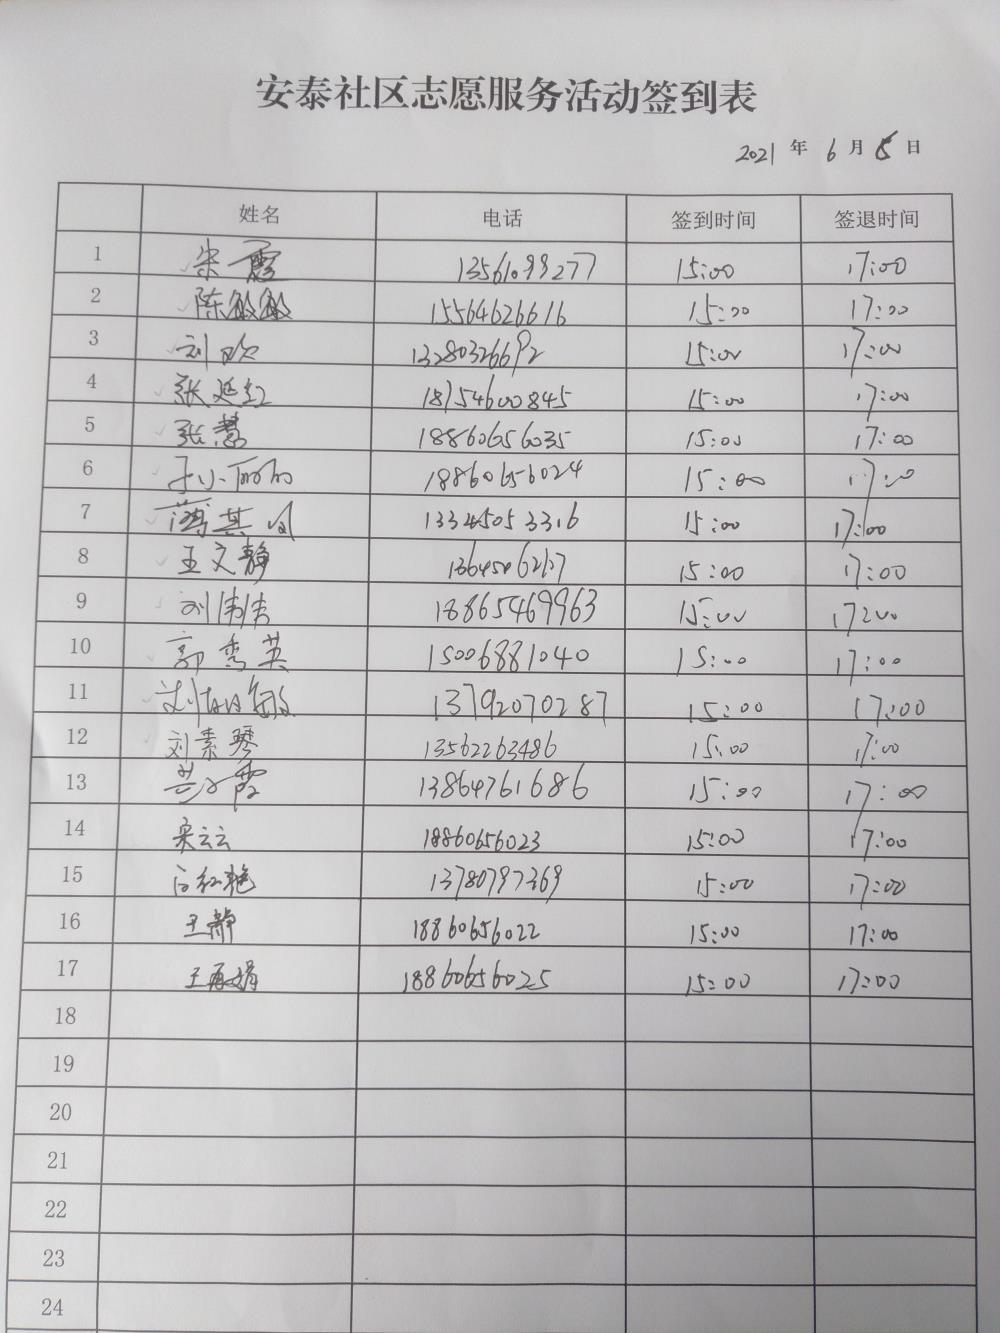 安泰社区志愿服务活动签到表
2021 年 6 月 日
姓名 电话 签到时间 签退时间
1 宋霞 15:00 17:00
2 陈敏敏 15564626616 15:00 17:00
3 刘欢 13280326692 15:00 17:00
4 张延红 18754600845 15:00 17:00
5 张慧 18860656035 15:00 17:00
6 于小丽 18860656024 15:00 17:00
7 薄其凤 13345053316 15:00 17:00
8 王文静 15:00 17:00
9 刘伟伟 18865469963 15:00 17:00
10 郭秀英 15006881040 15:00 17:00
11 刘敏 13792070287 15:00 17:00
12 刘素琴 13562263486 15:00 17:00
13 霞 13864761686 15:00 17:00
14 宋云云 18860656023 15:00 17:00
15 红艳 13780797369 15:00 17:00
16 王静 18860656022 15:00 17:00
17 王再娟 18860656025 15:00 17:00
18
19
20
21
22
23
24